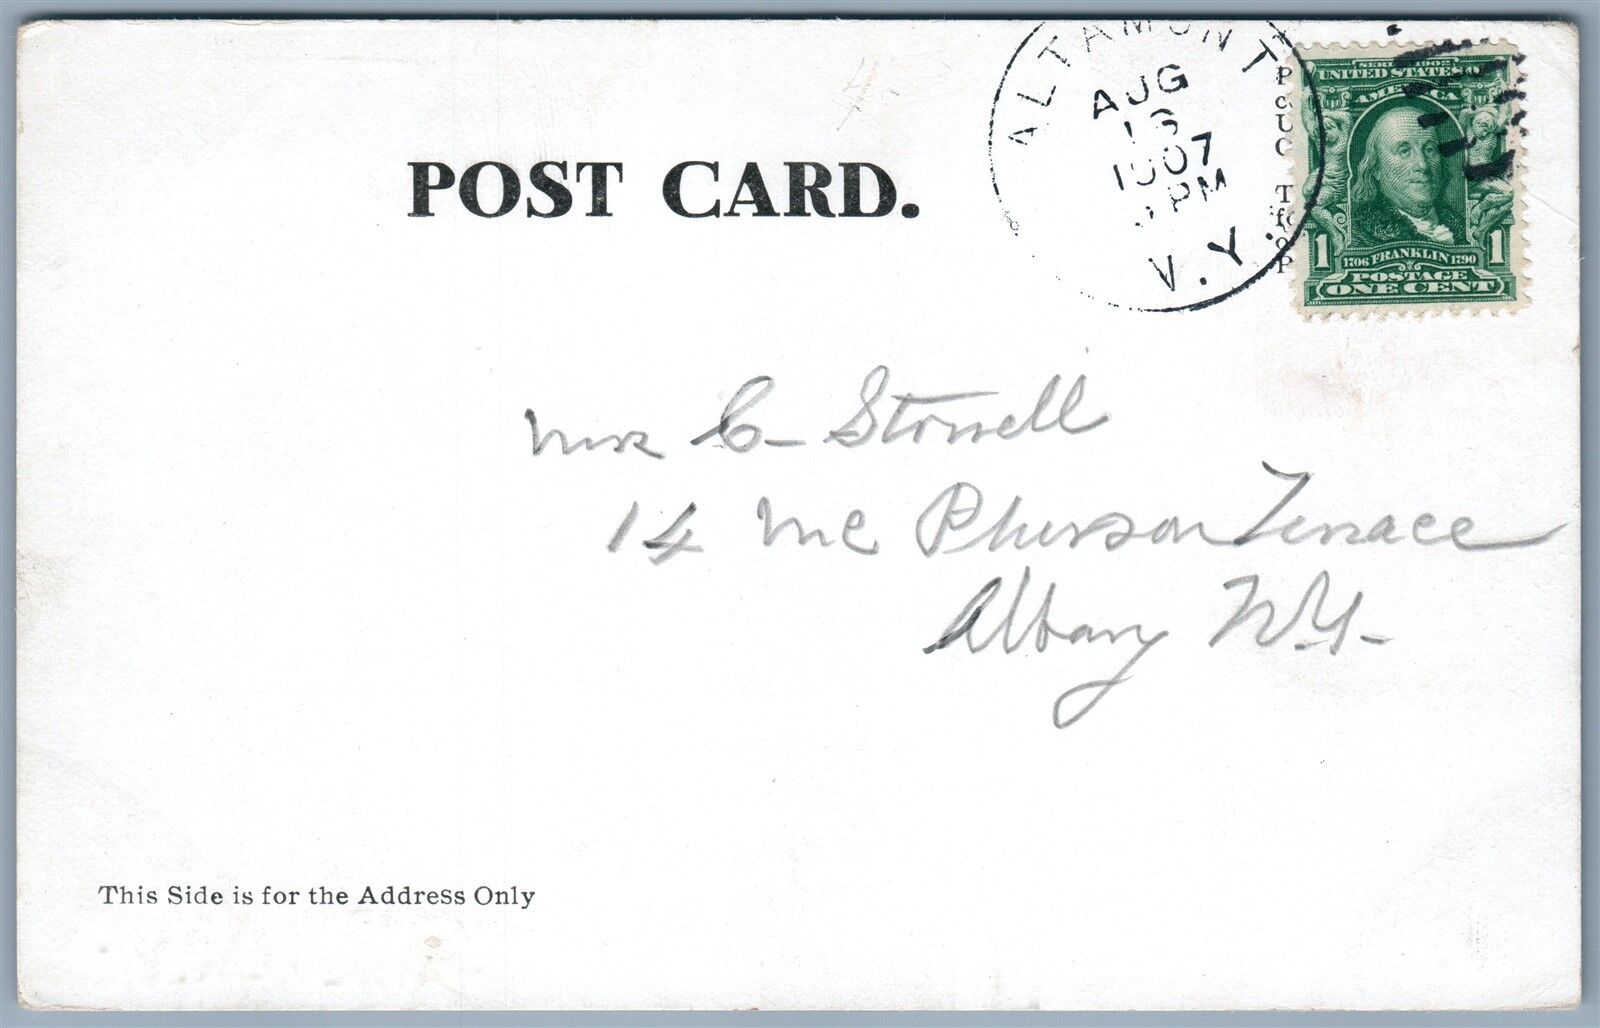 POST CARD.
ALTAMONT
AUG
16
1907
PM
N.Y.
SERIES 1902
UNITED STATES OF
AMERICA
1 1
1706 FRANKLIN 1790
POSTAGE
ONE CENT
C- Storrell
14 Mc Pherson Terrace
Albany N.Y-
This Side is for the Address Only